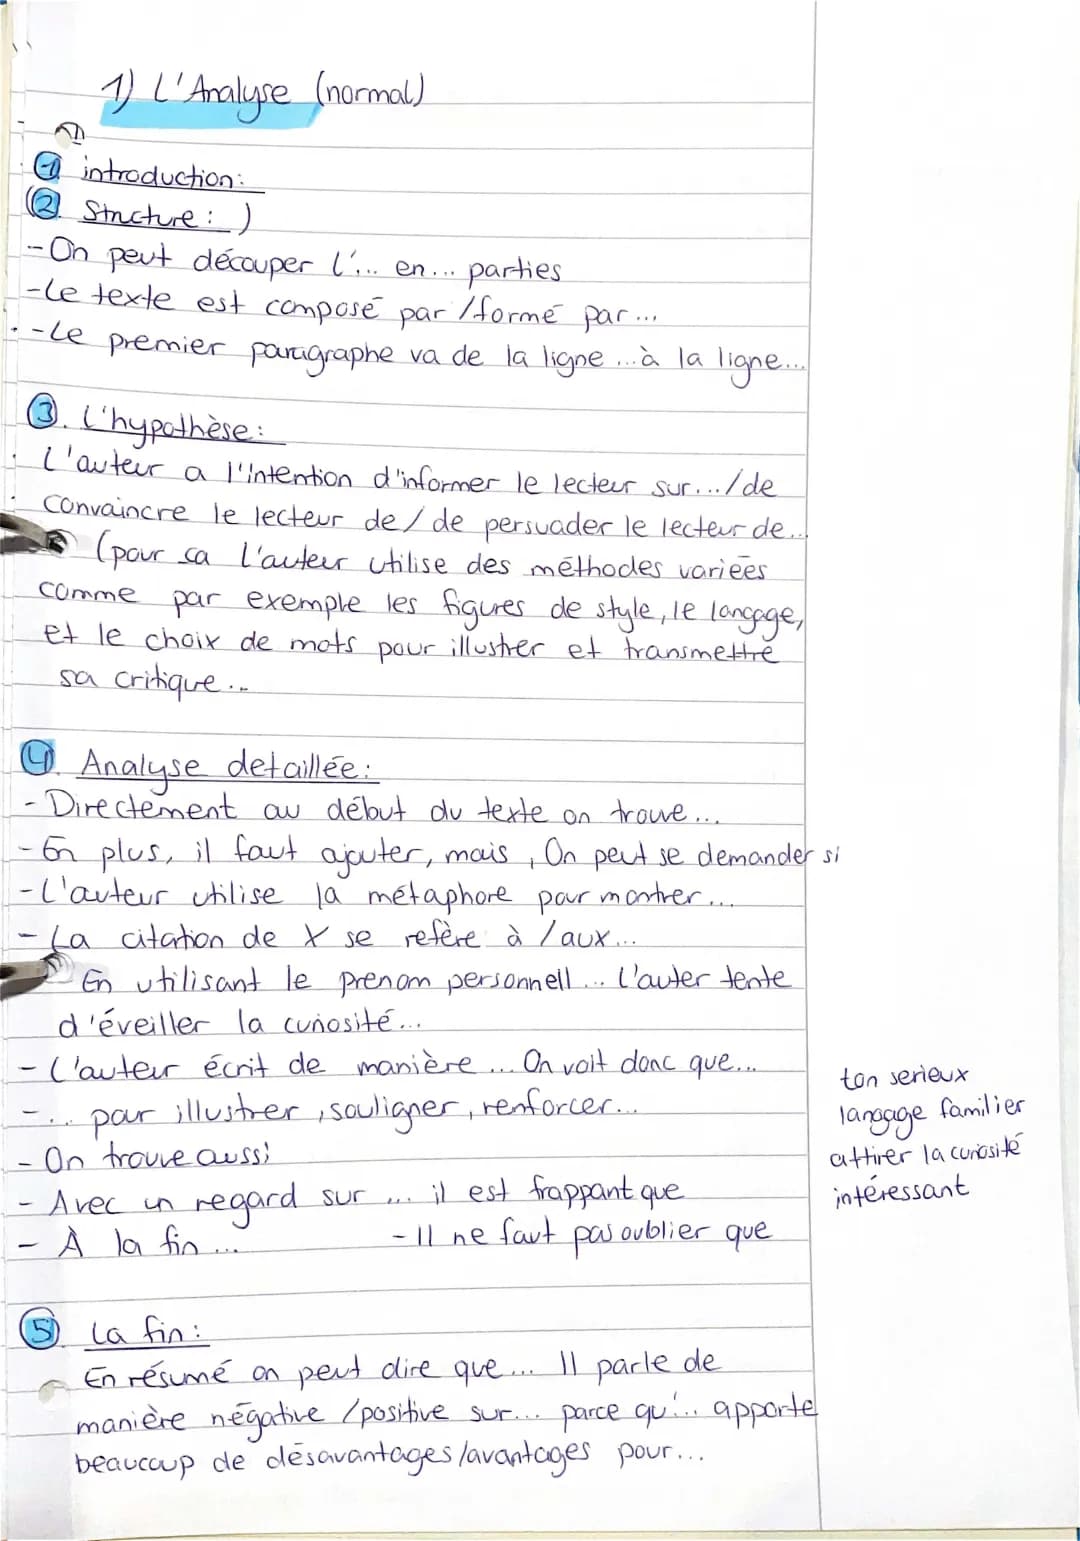 1) L'Analyse (normal)
1 introduction:
(2. Structure: )
- On peut découper l'... en... parties
- Le texte est composé par / formé par...
- Le premier paragraphe va de la ligne ... à la ligne...
3. L'hypothèse:
L'auteur a l'intention d'informer le lecteur sur.../de
convaincre le lecteur de/ de persuader le lecteur de...
(pour sa l'auteur utilise des méthodes variées
comme par exemple les figures de style, le langage,
et le choix de mots pour illustrer et transmettre
sa critique...
4. Analyse detaillée:
- Directement au début du texte on trouve...
- En plus, il faut ajouter, mais, On peut se demander si
- L'auteur utilise la métaphore pour montrer...
- La citation de X se refère à /aux...
En utilisant le prenom personnell... l'auter tente
d'éveiller la curiosité...
- L'auteur écrit de manière ... On voit donc que...
- ... pour illustrer, souligner, renforcer...
- On trouve aussi
- Avec un regard sur ... il est frappant que
- À la fin ... - Il ne faut pas oublier que
ton serieux
langage familier
attirer la curiosité
intéressant
5 La fin:
En résumé on peut dire que... Il parle de
manière négative /positive sur... parce qu'... apporte
beaucoup de désavantages/avantages pour...